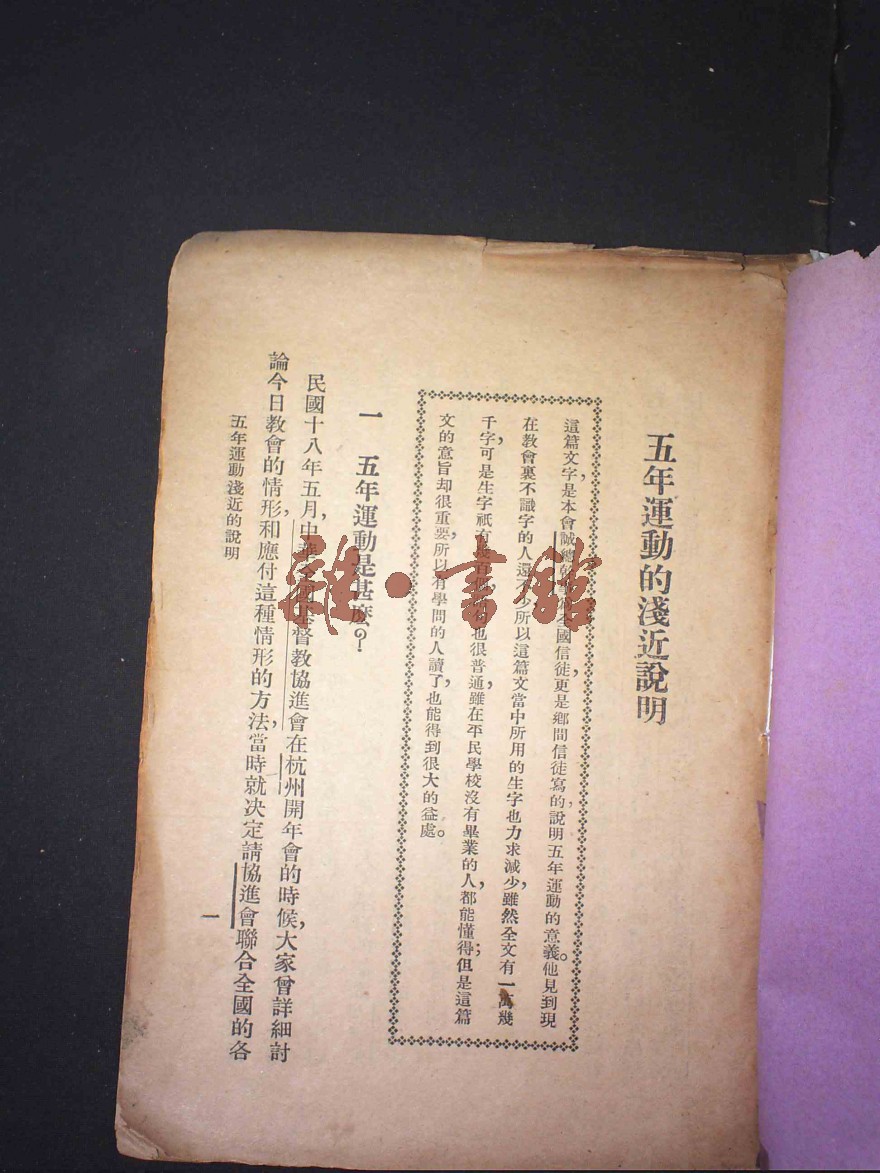 五年運動的淺近說明
這篇文字，是本會誠 全國信徒，更是鄉間信徒寫的，說明五年運動的意義。他見到現
在教會裏不識字的人還 少，所以這篇文當中所用的生字也力求減少，雖然全文有一萬幾
千字，可是生字祇有 也很普通，雖在平民學校沒有畢業的人，都能懂得；但是這篇
文的意旨却很重要，所以有學問的人讀了，也能得到很大的益處。
一 五年運動是甚麼？
民國十八年五月，中華全國基督教協進會在杭州開年會的時候，大家曾詳細討
論今日教會的情形，和應付這種情形的方法，當時就決定請協進會聯合全國的各
五年運動淺近的說明
一
雜·書館